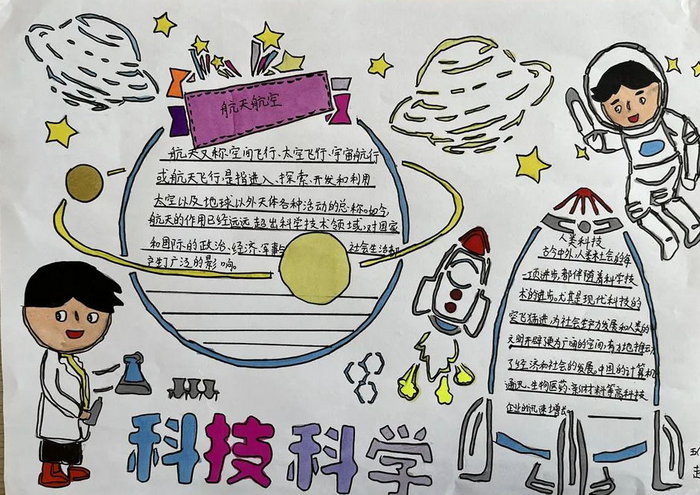 航天航空
航天又称空间飞行、太空飞行、宇宙航行
或航天飞行,是指进入、探索、开发和利用
太空以及地球以外天体各种活动的总称。如今,
航天的作用已经远远超出科学技术领域,对国家
和国际的政治、经济、军事 社会生活都
产生了广泛的影响。
人类科技
古今中外,人类社会的每
一项进步,都伴随着科学技
术的进步。尤其是现代科技的
突飞猛进,为社会生产力发展和人类的
文明开辟更为广阔的空间,有力地推动
了经济和社会的发展。中国的计算机
通讯、生物医药、新材料等高科技
企业的迅速增长
科技科学